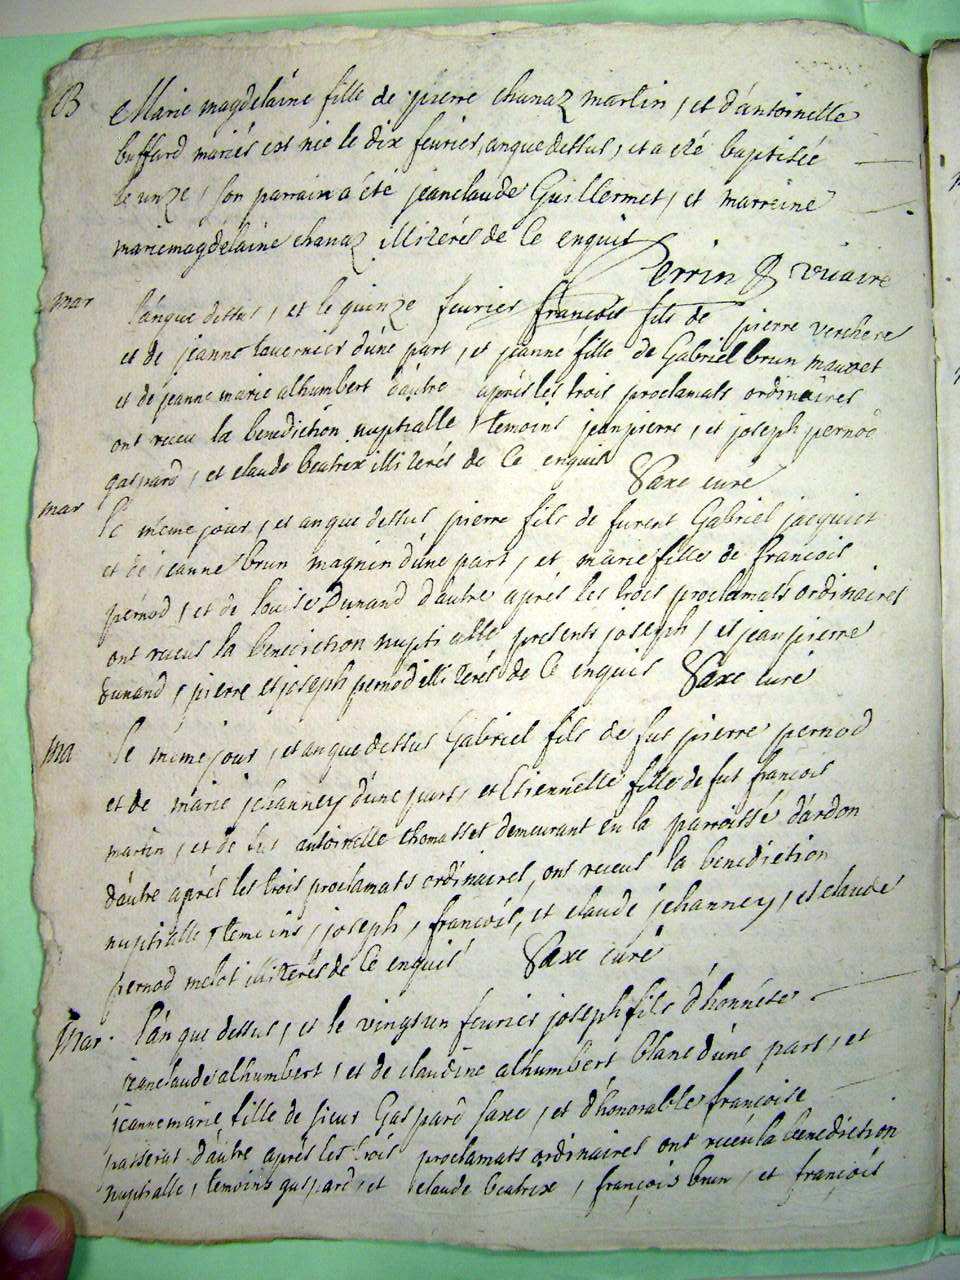 B Marie magdelaine fille de pierre chanaz martin, et d'antoinette
buffard mariés est née le dix fevrier, anque dessus, et a été baptisée
le unze, son parrain a été jeanclaude Guillermet, et marreine
mariemagdelaine chanaz illiterés de ce enquis
Perrin vicaire
mar l'anque dessus, et le quinze fevrier françois fils de pierre verchere
et de jeanne tavernier d'une part, et jeanne fille de Gabriel brun mauvet
et de jeanne marie alhumbert d'autre aprés les trois proclamats ordinaires
ont receu la benediction nuptialle, temoins jeanpierre, et joseph pernod
gaspard, et claude beatrix illiterés de ce enquis Saxe curé
mar le même jour, et anque dessus pierre fils de furent Gabriel jacquiot
et de jeanne brun magnin d'une part, et marie fille de françois
pernod, et de louise Dunand d'autre aprés les trois proclamats ordinaires
ont receus la benediction nuptialle presents joseph, et jeanpierre
Dunand, pierre et joseph pernod illiterés de ce enquis Saxe curé
ma le même jour, et anque dessus Gabriel fils de fut pierre pernod
et de marie jehanney d'une part, et Etiennette fille de fut françois
martin, et de fut antoinette thomasset demeurant en la parroisse d'ardon
d'autre aprés les trois proclamats ordinaires, ont receus la benediction
nuptialle, temoins, joseph, françois, et claude jehanney, et claude
pernod melot illiterés de ce enquis Saxe curé
Mar. l'an que dessus, et le vingtun fevrier joseph fils d'honnéte
jeanclaude alhumbert, et de claudine alhumbert blanc d'une part, et
jeannemarie fille de sieur Gaspard saxe, et d'honorable françoise
passerat d'autre aprés les trois proclamats ordinaires ont receu la benediction
nuptialle, temoins gaspard, et claude beatrix, françois brun, et françois